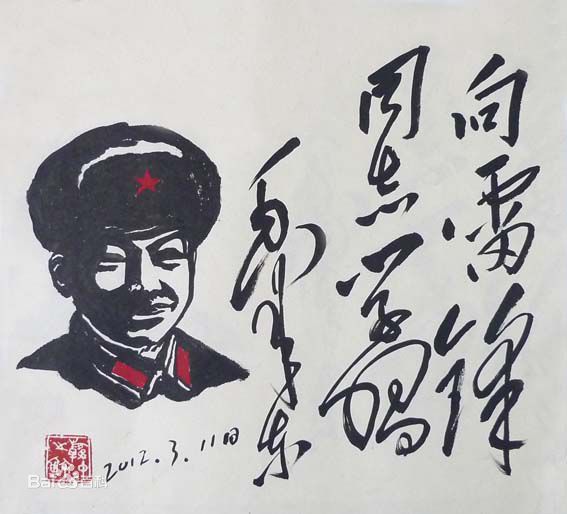 向雷锋
同志学习
毛泽东
2012.3.11日
Bai 百科